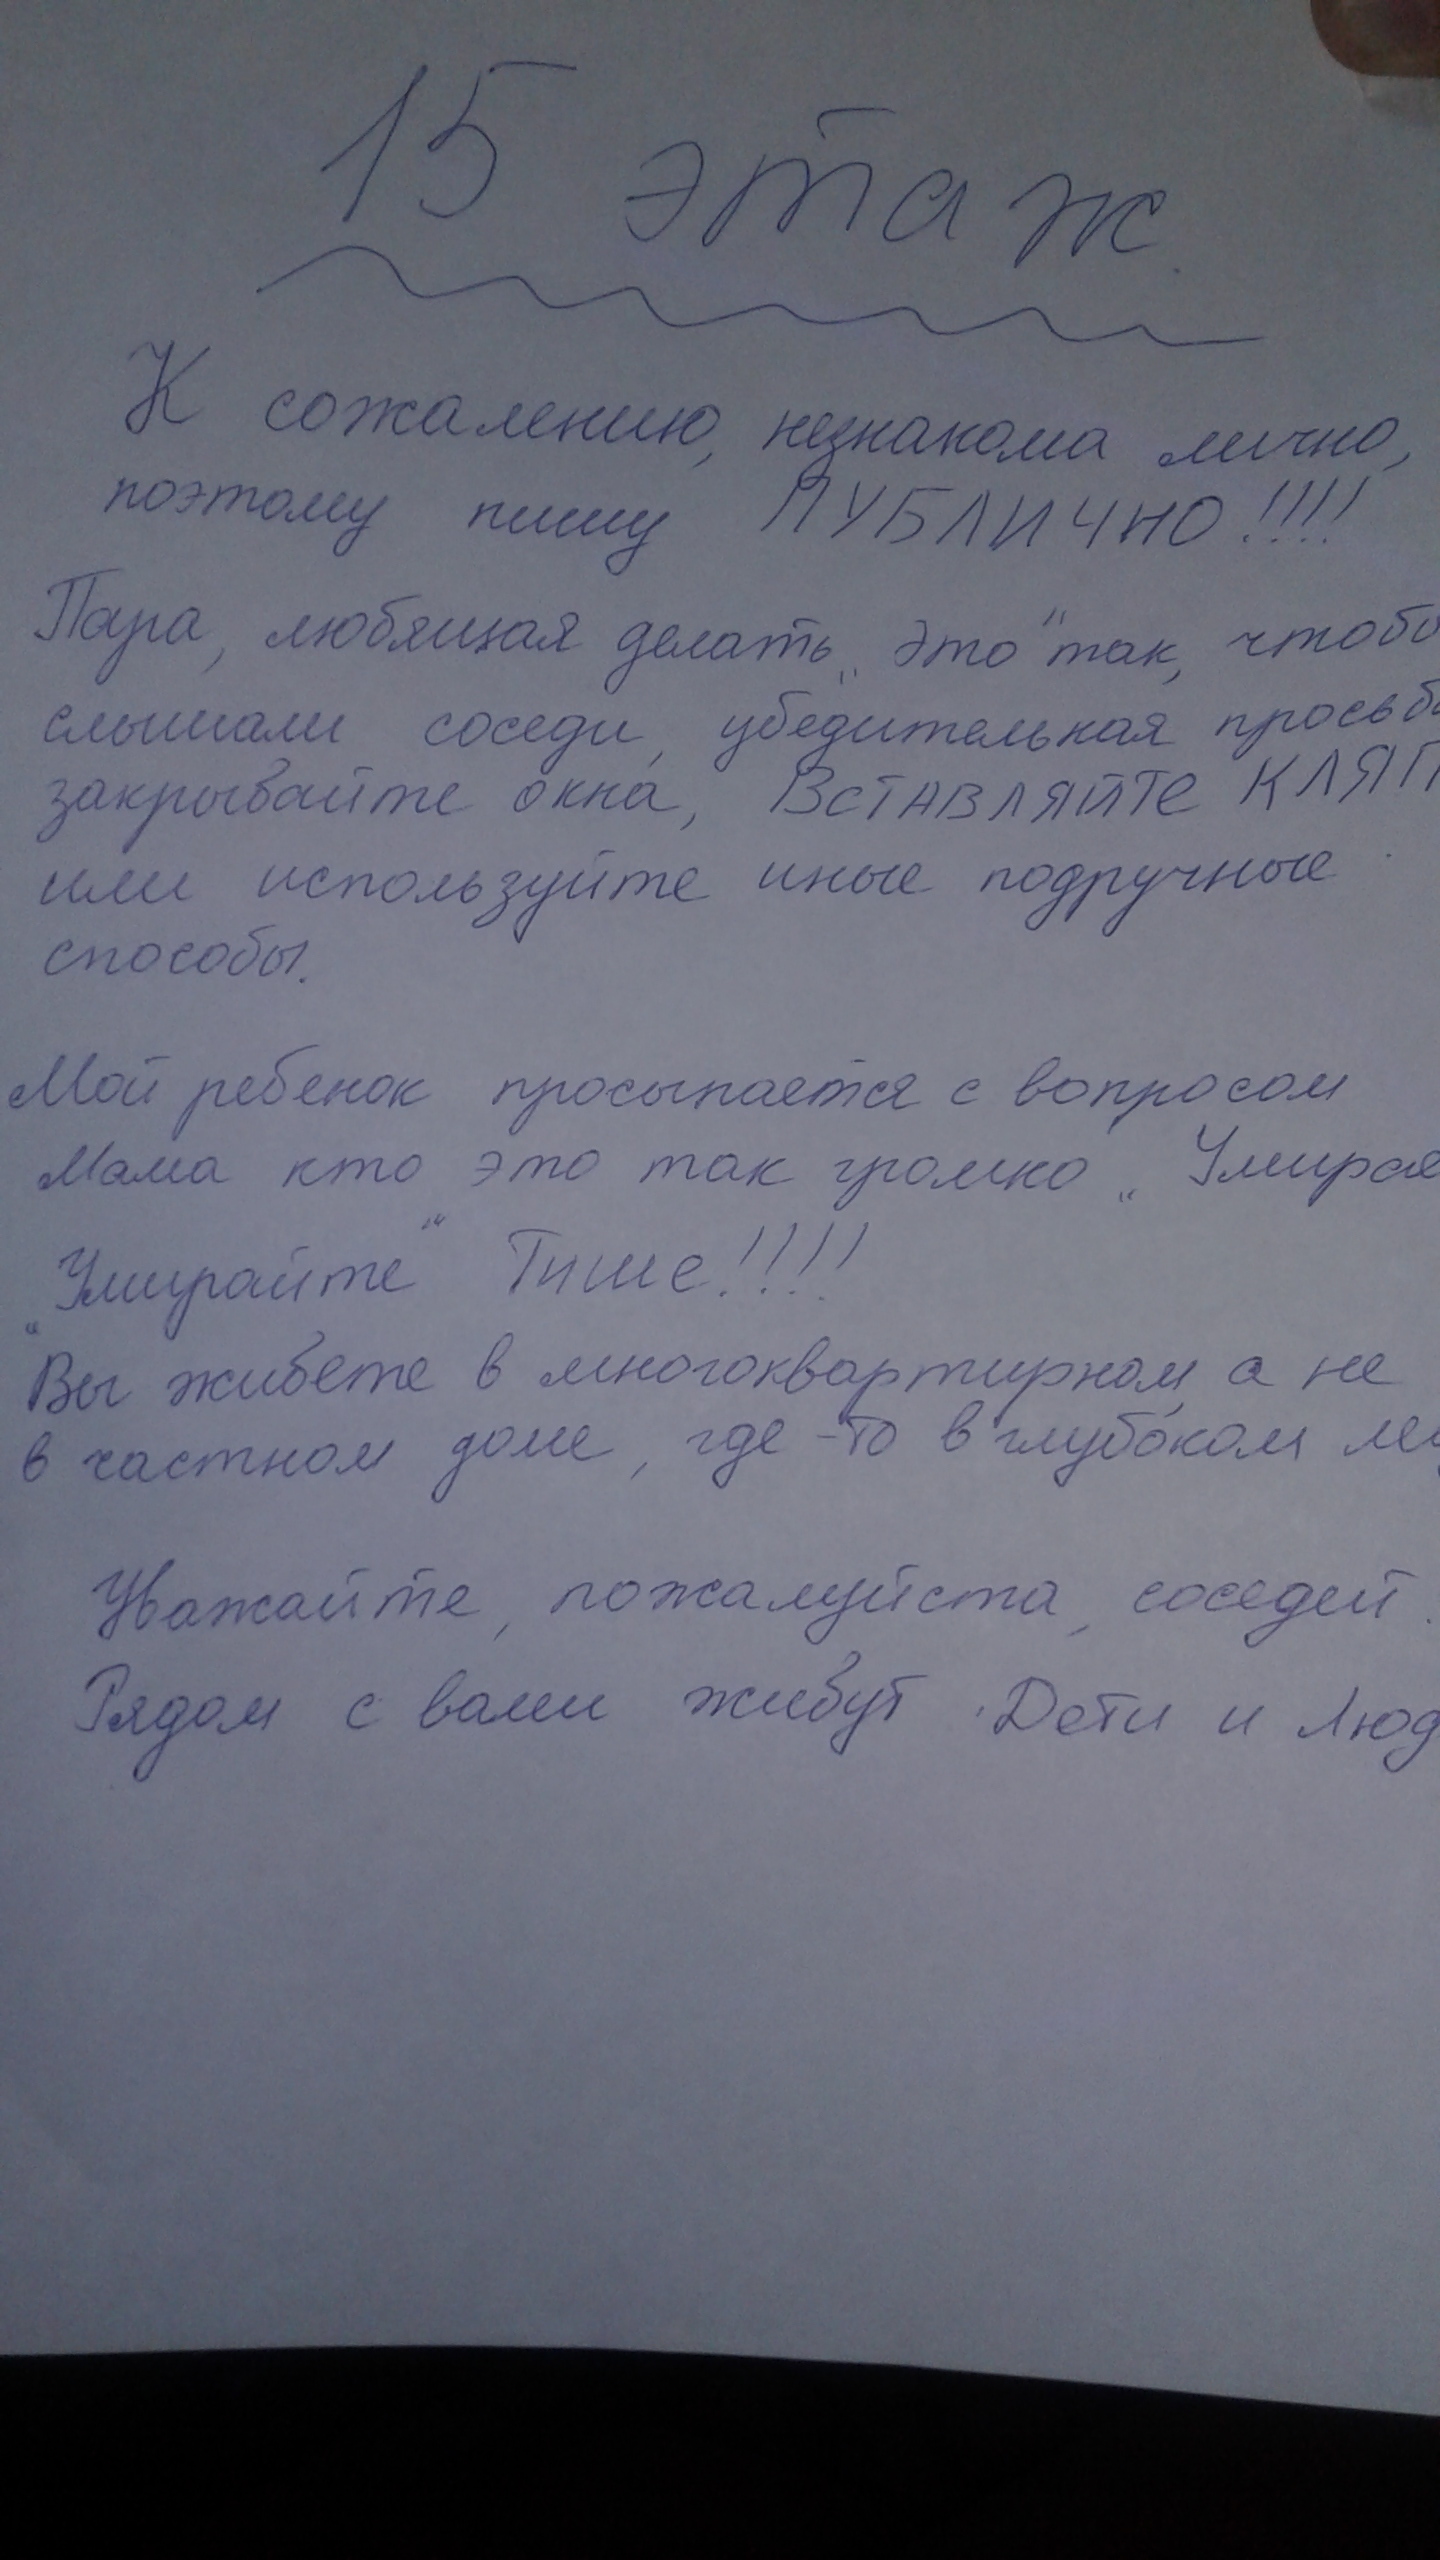 15 этаж
К сожалению, незнакома лично,
поэтому пишу ПУБЛИЧНО!!!!
Пара, любящая делать „это“ так, чтобы
слышали соседи, убедительная просьба
закрывайте окна, ВСТАВЛЯЙТЕ КЛЯП
или используйте иные подручные
способы.
Мой ребенок просыпается с вопросом
Мама кто это так громко „Умирае
„Умирайте“ Тише!!!!
Вы живете в многоквартирном, а не
в частном доме, где-то в глубоком ле
Уважайте, пожалуйста, соседей.
Рядом с вами живут Дети и Люд